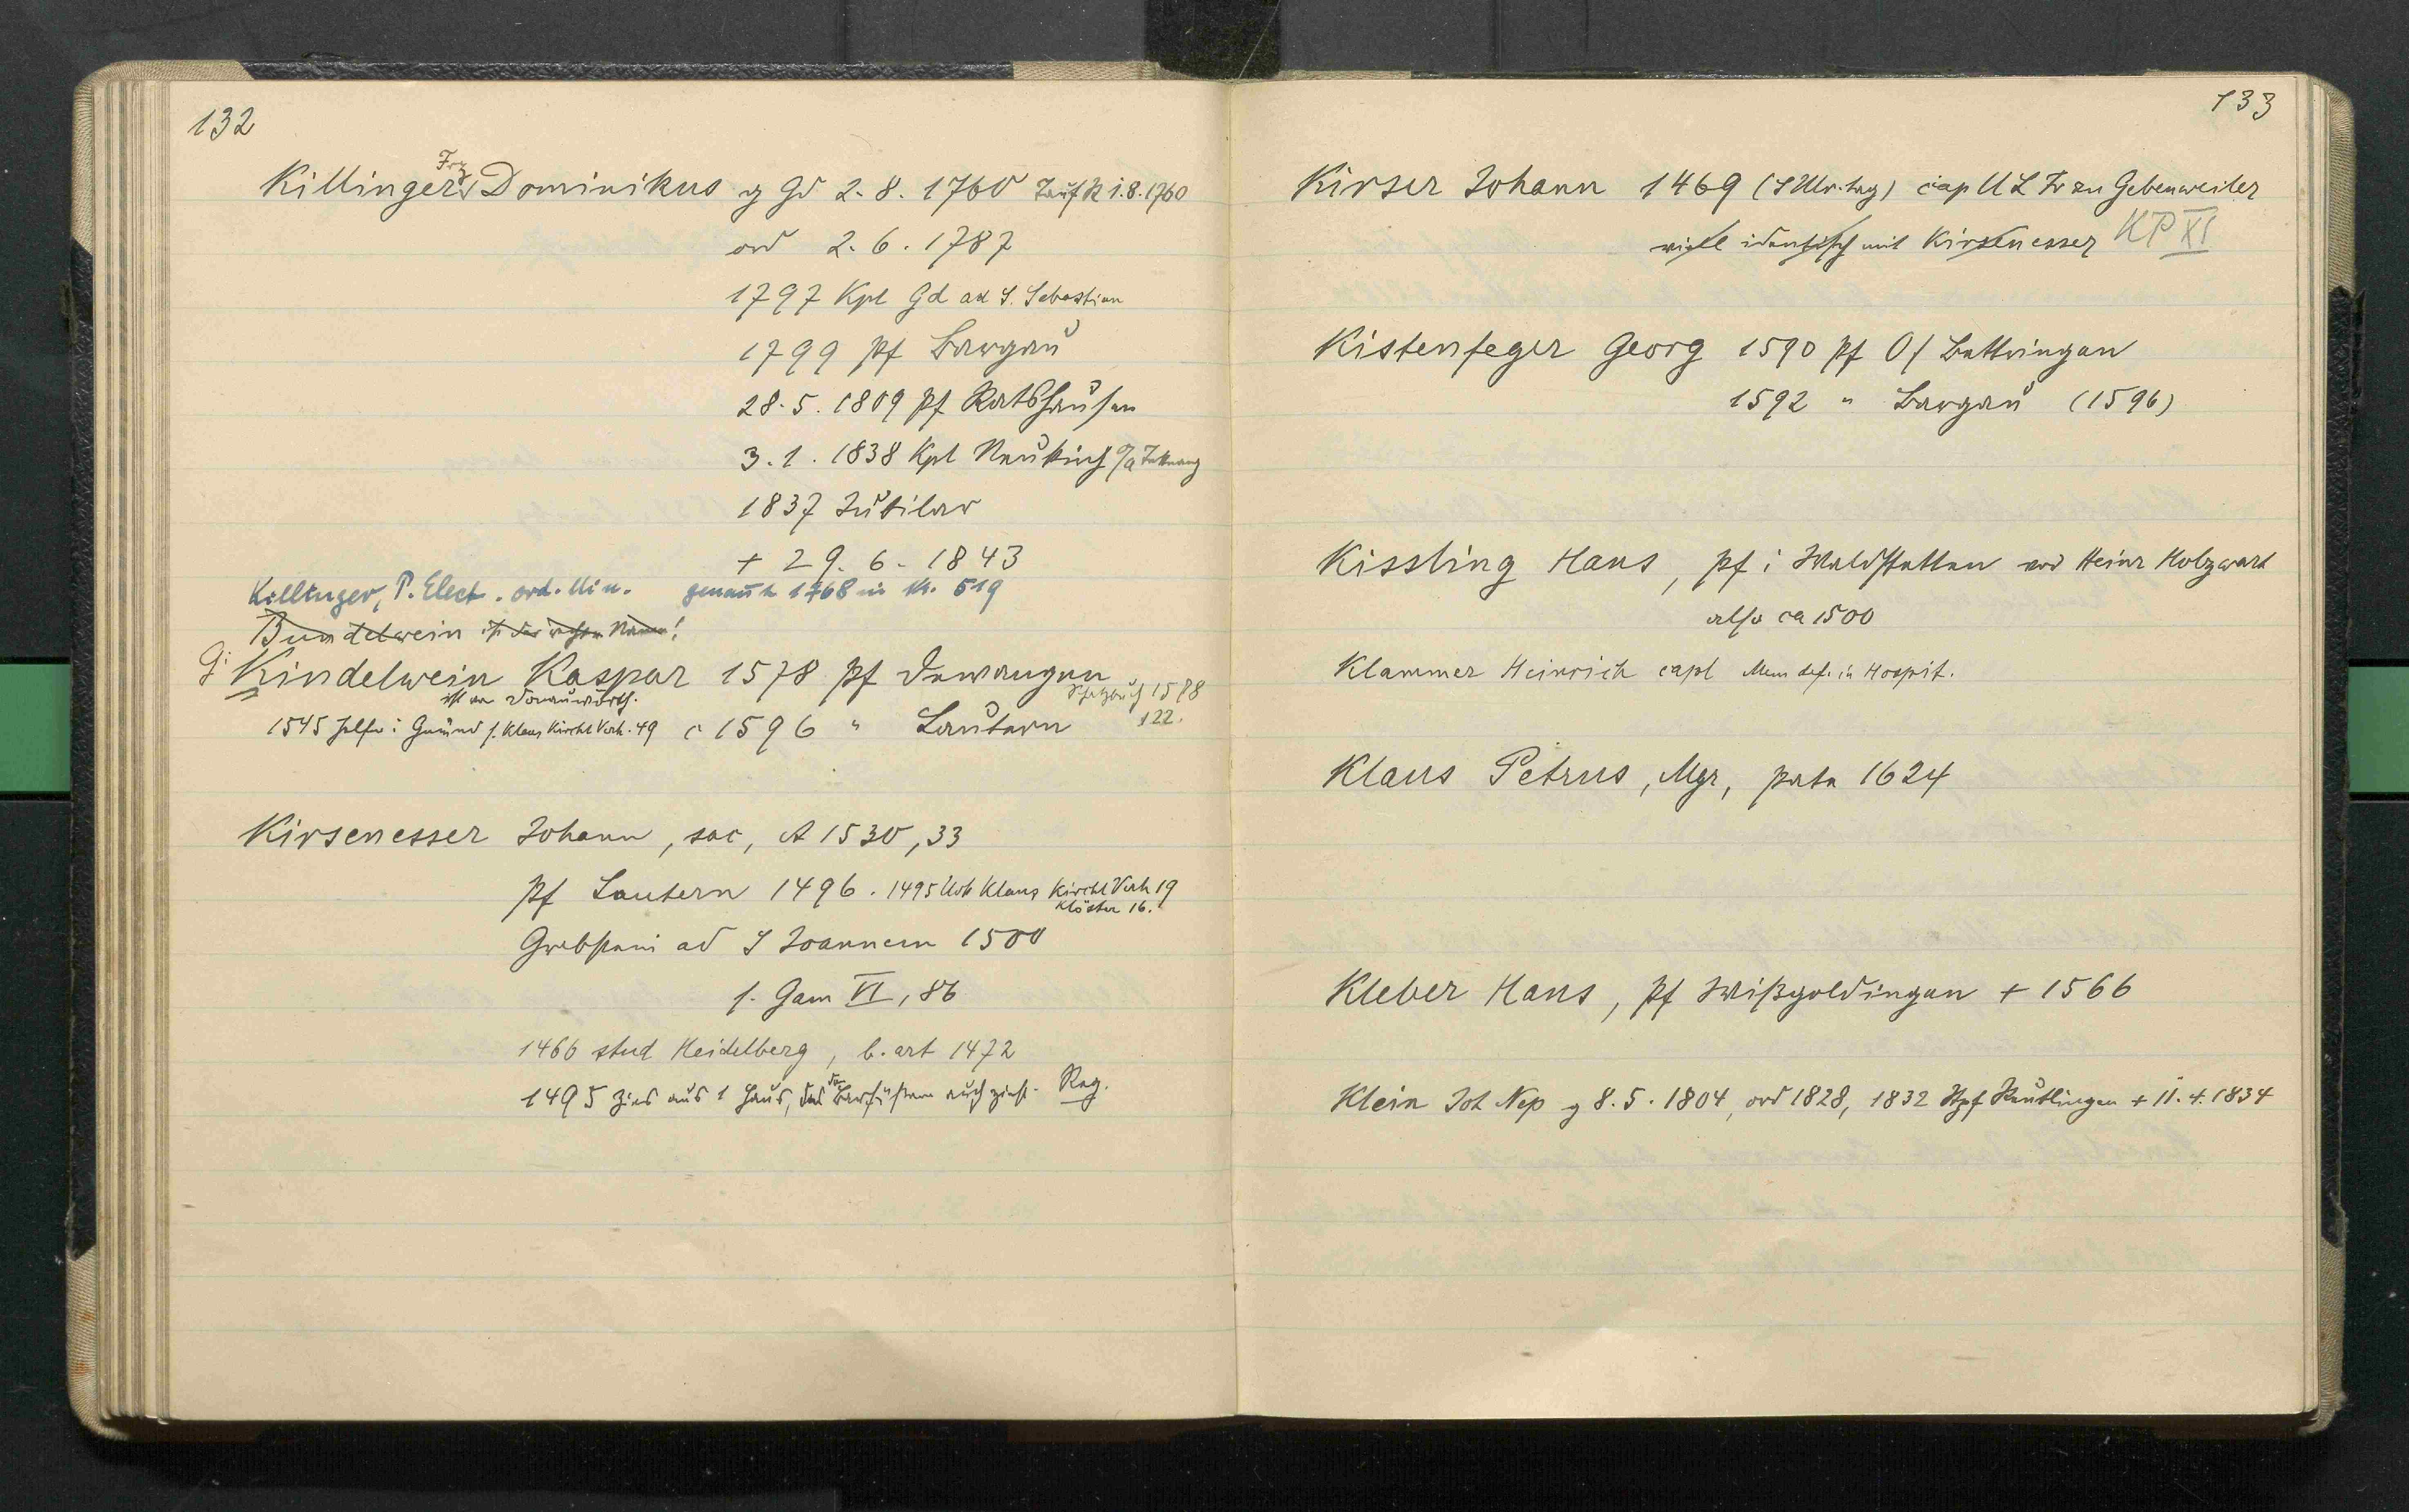 132
Killinger Frz Dominikus g Gd 2. 8. 1760 Taufb 1. 8. 1760
ord 2. 6. 1787
1797 Kpl Gd ad S. Sebastian
1799 pf Bargau
28. 5. 1809 pf Ratshausen
3. 1. 1838 Kpl Neukirch O/A Tettnang
1837 Jubilar
+ 29. 6. 1843
Killinger, P. Elect. ord. Min. genannt 1768 in K. 519
Bundelwein ist der Namen!
G: Kindelwein Kaspar 1578 pf Dewangen
ist von Donauwörth. 1588
1545 Helfer i Gmünd s. Klaus Kirchl Verh. 49 c 1596 " Lautern 122.
Kirsenesser Johann, sac, A 1530, 33
pf Lautern 1496. 1495 Urk Klaus Kirchl Verh 19
Klöster 16.
Grabstein ad S Joannem 1500
s. Gam VI, 86
1466 stud Heidelberg, b. art 1472
1495 Zins aus 1 Haus, das den Barfüßern auch zinst. Reg.
133
Kirser Johann 1469 (S Ulr. tag) cap U L Fr zu Gebenweiler
viell identisch mit Kirsenesser KP XI
Kistenfeger Georg 1590 pf O/ Bettringen
1592 " Bargau (1596)
Kissling Hans, pf i Waldstetten vor Heinr Holzwart
also ca 1500
Klammer Heinrich capl Mem def. in Hospit.
Klaus Petrus, Mgr, pate 1624
Kleber Hans, pf Wißgoldingen + 1566
Klein Joh Nep g 8. 5. 1804, ord 1828, 1832 Stpf Reutlingen + 11. 4. 1834